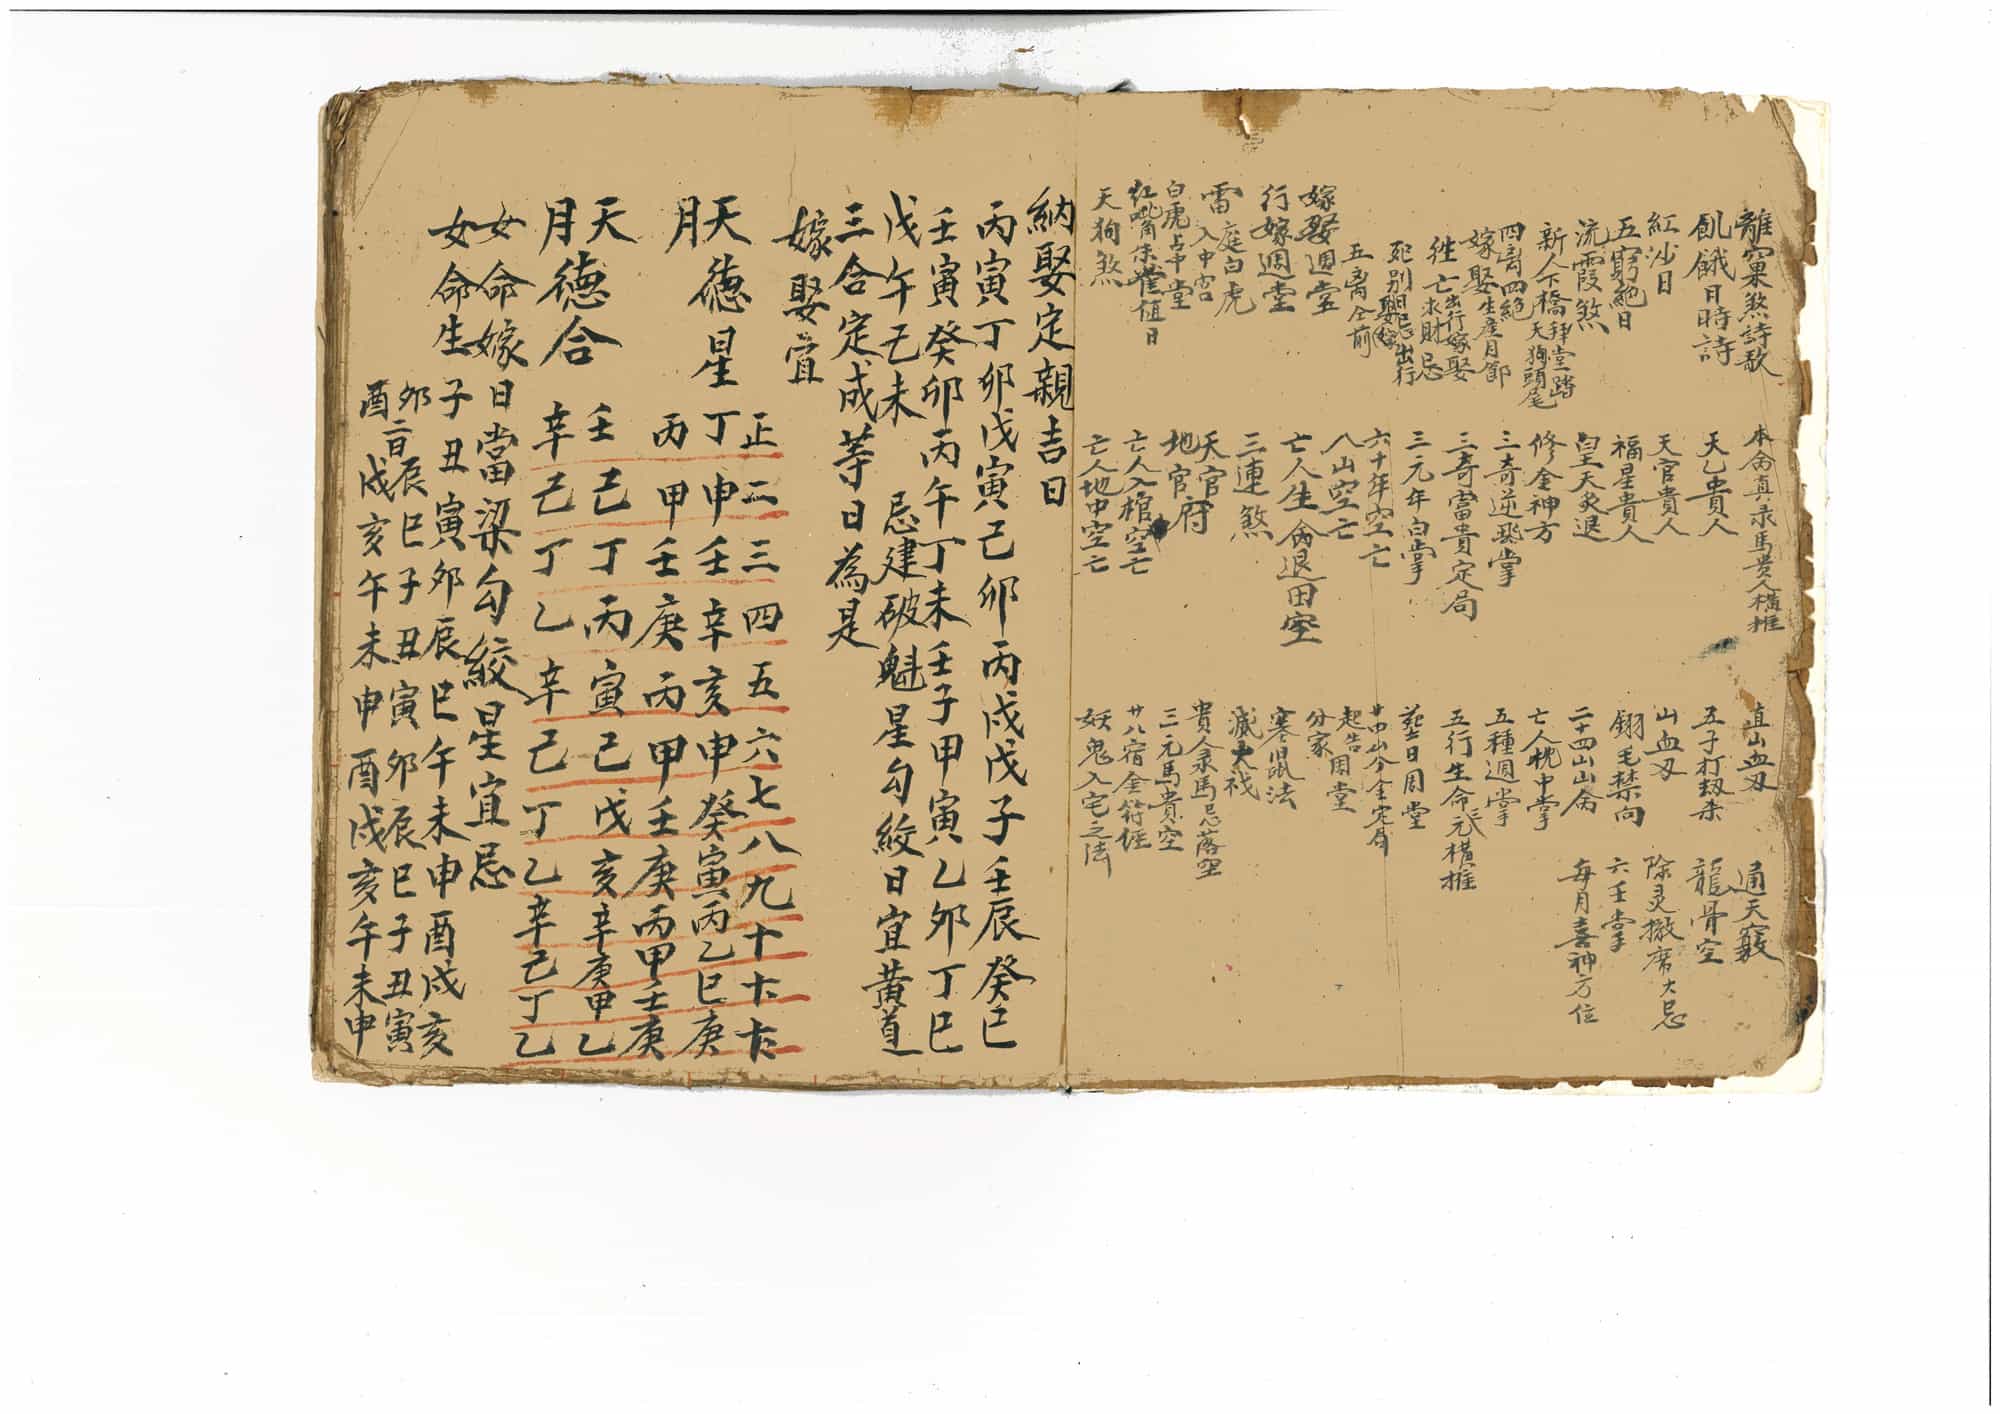 離窠煞詩歌
飢餓日時詩
紅沙日
五窮絕日
流霞煞
新人下橋拜堂踏天狗頭尾
四离四絕
嫁娶生產月節
往亡出行嫁娶求財忌
死别日忌出行嫁娶
五离仝前
嫁娶週堂
行嫁週堂
雷庭白虎入中宫
白虎占中堂
紅嘴朱雀值日
天狗煞
本命真彔馬贵人橫推
天乙貴人
天官貴人
福星貴人
皇天炙退
修金神方
三奇逆飛掌
三奇當貴定局
三元年白掌
六十年空亡
八山空亡
亡人生命退田空
三連煞
天官府
地官府
亡人入棺空亡
亡人地中空亡
直山血刃
五子打刼杀
山血刃
翎毛禁向
二十四山山命
亡人枕中掌
五種週掌
五行生命元橫推
葬日周堂
廿四山分金定局
起告用堂
分家
寒鼠法
滅夫戏
貴人彔馬忌落空
三元馬貴空
廿八宿金符經
妖鬼入宅之法
通天竅
龍骨空
除灵撤席大忌
六壬掌
每月喜神方位
納娶定親吉日
丙寅丁卯戊寅己卯丙戌戊子壬辰癸巳
壬寅癸卯丙午丁未壬子甲寅乙卯丁巳
戊午己未 忌建破魁星勾絞日宜黄道
三合定成等日為是
嫁娶宜
正二三四五六七八九十十一十二
天德星 丁申壬辛亥申癸寅丙乙巳庚
月 丙甲壬庚丙甲壬庚丙甲壬庚
天德合 壬己丁丙寅己戊亥辛庚甲乙
月 辛己丁乙辛己丁乙辛己丁乙
女命嫁日當梁勾絞星宜忌
女命生子丑寅卯辰巳午未申酉戌亥
卯辰巳子丑寅卯辰巳子丑寅
酉二日戌亥午未申酉戌亥午未申